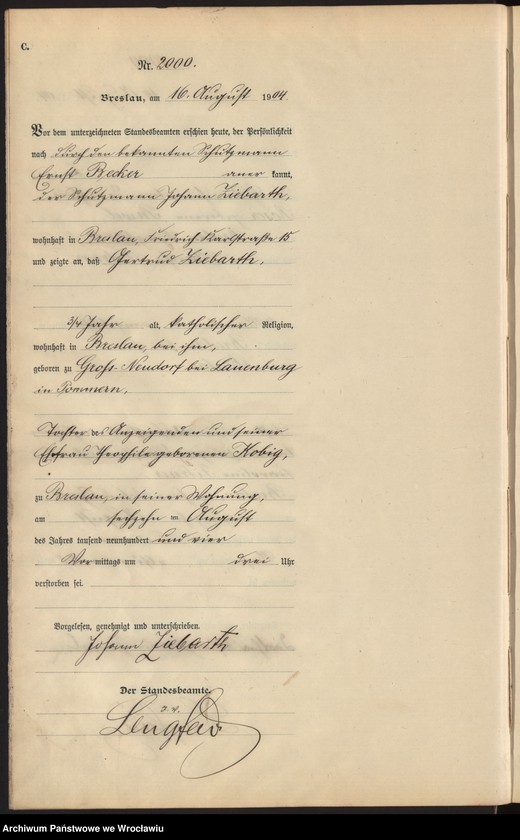 C.
Nr. 2000.
Breslau, am 16. August 1904.
Vor dem unterzeichneten Standesbeamten erschien heute, der Persönlichkeit
nach durch den bekannten Schutzmann
Ernst Becker anerkannt,
der Schutzmann Johann Ziebarth,
wohnhaft in Breslau, Friedrich-Karlstraße 15
und zeigte an, daß Gertrud Ziebarth,
3/4 Jahr alt, katholischer Religion,
wohnhaft in Breslau, bei ihm,
geboren zu Groß-Neudorf bei Lauenburg
in Pommern,
Tochter des Anzeigenden und seiner
Ehefrau Theophile geborenen Kobig,
zu Breslau, in seiner Wohnung,
am sechzehn ten August
des Jahres tausend neunhundert und vier
Vormittags um drei Uhr
verstorben sei.
Vorgelesen, genehmigt und unterschrieben.
Johann Ziebarth
Der Standesbeamte.
Archiwum Państwowe we Wrocławiu